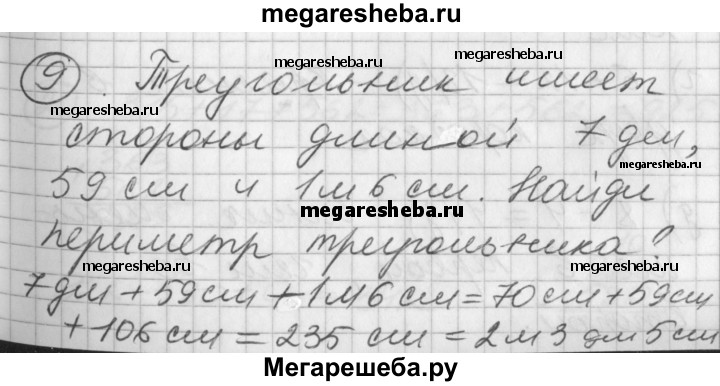 megaresheba.ru
9. Треугольник имеет
megaresheba.ru megaresheba.ru
стороны длиной 7 дм,
megaresheba.ru
59 см и 1 м 6 см. Найди
megaresheba.ru
периметр треугольника!
megaresheba.ru megaresheba.ru
7 дм + 59 см + 1 м 6 см = 70 см + 59 см
+ 106 см = 235 см = 2 м 3 дм 5 см
Мегарешеба.ру